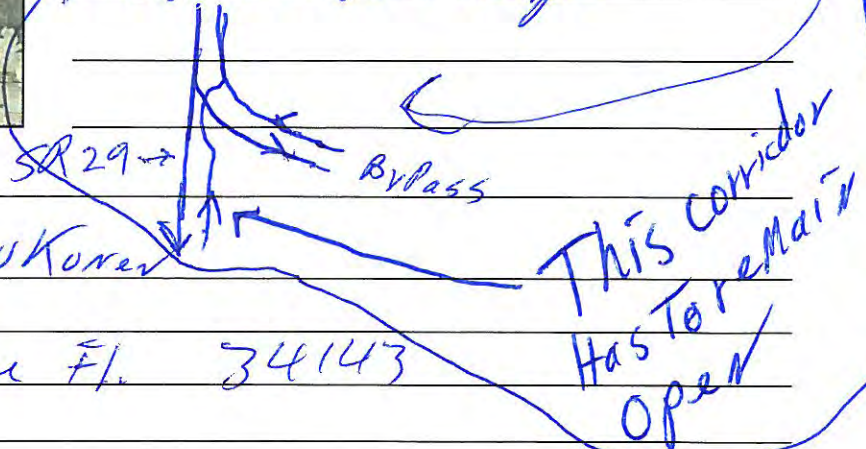 SR29→
ByPass
This corridor
Has To reMain
Open
Fl. 34143